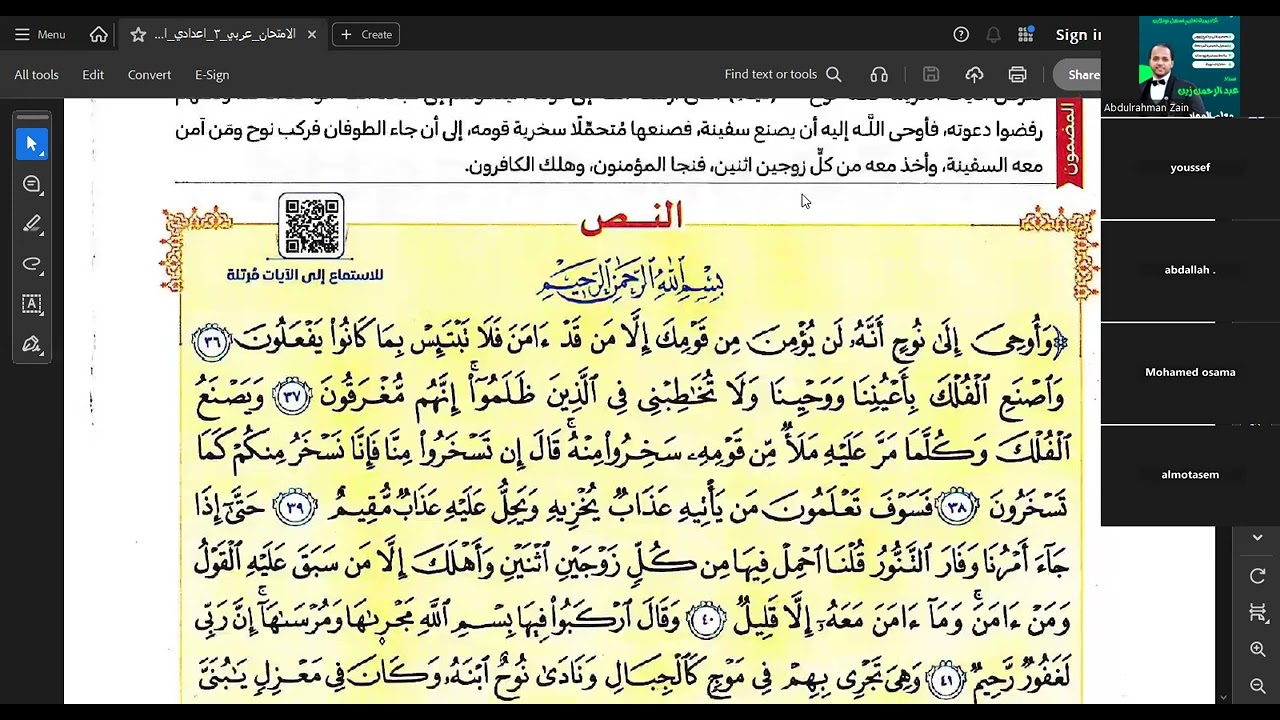 Menu
الامتحان_عربي_٣_اعدادي_ا...
Create
Sign in
All tools
Edit
Convert
E-Sign
Find text or tools
Share
عبد الرحمن زين
Abdulrahman Zain
youssef
abdallah .
Mohamed osama
almotasem
المضمون
رفضوا دعوته، فأوحى اللَّه إليه أن يصنع سفينة، فصنعها مُتحمِّلًا سخرية قومه، إلى أن جاء الطوفان فركب نوح ومَن آمن
معه السفينة، وأخذ معه من كلِّ زوجين اثنين، فنجا المؤمنون، وهلك الكافرون.
النـص
للاستماع إلى الآيات مُرتلة
بِسْمِ اللَّهِ الرَّحْمَٰنِ الرَّحِيمِ
﴿وَأُوحِىَ إِلَىٰ نُوحٍ أَنَّهُۥ لَن يُؤْمِنَ مِن قَوْمِكَ إِلَّا مَن قَدْ ءَامَنَ فَلَا تَبْتَئِسْ بِمَا كَانُوا۟ يَفْعَلُونَ ٣٦
وَٱصْنَعِ ٱلْفُلْكَ بِأَعْيُنِنَا وَوَحْيِنَا وَلَا تُخَٰطِبْنِى فِى ٱلَّذِينَ ظَلَمُوٓا۟ ۚ إِنَّهُم مُّغْرَقُونَ ٣٧ وَيَصْنَعُ
ٱلْفُلْكَ وَكُلَّمَا مَرَّ عَلَيْهِ مَلَأٌ مِّن قَوْمِهِۦ سَخِرُوا۟ مِنْهُ ۚ قَالَ إِن تَسْخَرُوا۟ مِنَّا فَإِنَّا نَسْخَرُ مِنكُمْ كَمَا
تَسْخَرُونَ ٣٨ فَسَوْفَ تَعْلَمُونَ مَن يَأْتِيهِ عَذَابٌ يُخْزِيهِ وَيَحِلُّ عَلَيْهِ عَذَابٌ مُّقِيمٌ ٣٩ حَتَّىٰٓ إِذَا
جَآءَ أَمْرُنَا وَفَارَ ٱلتَّنُّورُ قُلْنَا ٱحْمِلْ فِيهَا مِن كُلٍّ زَوْجَيْنِ ٱثْنَيْنِ وَأَهْلَكَ إِلَّا مَن سَبَقَ عَلَيْهِ ٱلْقَوْلُ
وَمَنْ ءَامَنَ ۚ وَمَآ ءَامَنَ مَعَهُۥٓ إِلَّا قَلِيلٌ ٤٠ وَقَالَ ٱرْكَبُوا۟ فِيهَا بِسْمِ ٱللَّهِ مَجْر۪ىٰهَا وَمُرْسَىٰهَآ ۚ إِنَّ رَبِّى
لَغَفُورٌ رَّحِيمٌ ٤١ وَهِىَ تَجْرِى بِهِمْ فِى مَوْجٍ كَٱلْجِبَالِ وَنَادَىٰ نُوحٌ ٱبْنَهُۥ وَكَانَ فِى مَعْزِلٍ يَٰبُنَىَّ